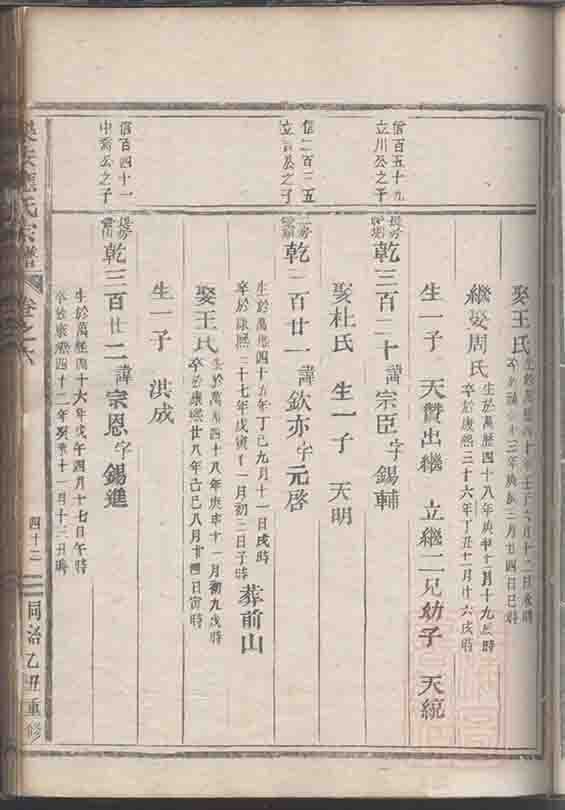 娶王氏 生於萬歷四十年壬子六月十二日 時
卒於 十三年庚 三月廿四日巳時
繼娶周氏 生於萬歷四十八年庚申十二月十九 時
卒於康熙三十六年丁丑十一月廿六戌時
生一子 天贊出繼 立繼二兄幼子 天統
信百五十九
立川公之子
乾三百二十諱宗臣字錫輔
娶杜氏 生一子 天明
信二百三五
立 公之子
二房
乾 百廿一諱欽亦字元啓
生於萬歷四十五年丁巳九月十一日戌時
卒於康熙三十七年戊寅十一月初三日子時 葬前山
娶王氏 生於萬歷四十八年庚申十一月初九戌時
卒於康熙廿八年己巳八月廿四日寅時
生一子 洪成
信百四十一
中 公之子
乾三百廿二諱宗恩字錫進
生於萬歷四十六年戊午四月十七日午時
卒於康熙四十二年癸未十一月十三丑時
氏宗譜 卷之六 四十三 同治乙丑重修